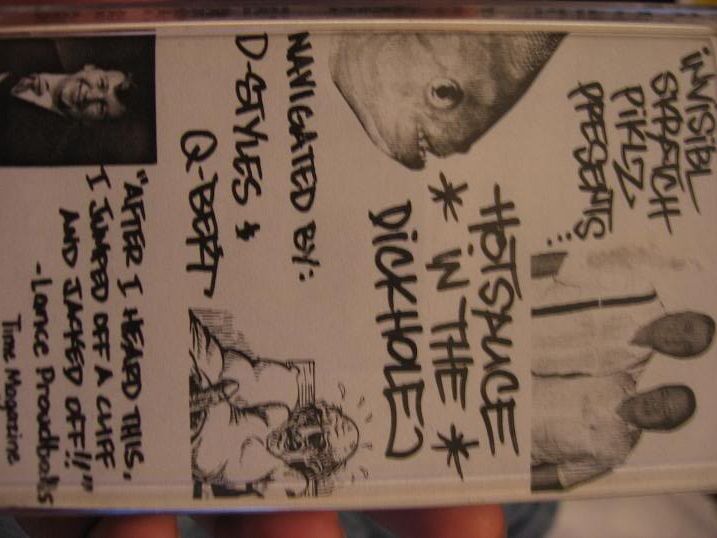 INVISIBL
SKRATCH
PIKLZ
PRESENTS:
HOTSAUCE
* IN THE *
DICKHOLE
NAVIGATED BY:
D-STYLES &
Q-BERT
"AFTER I HEARD THIS,
I JUMPED OFF A CLIFF
AND JACKED OFF!!"
-Lance Proudballs
Time Magazine